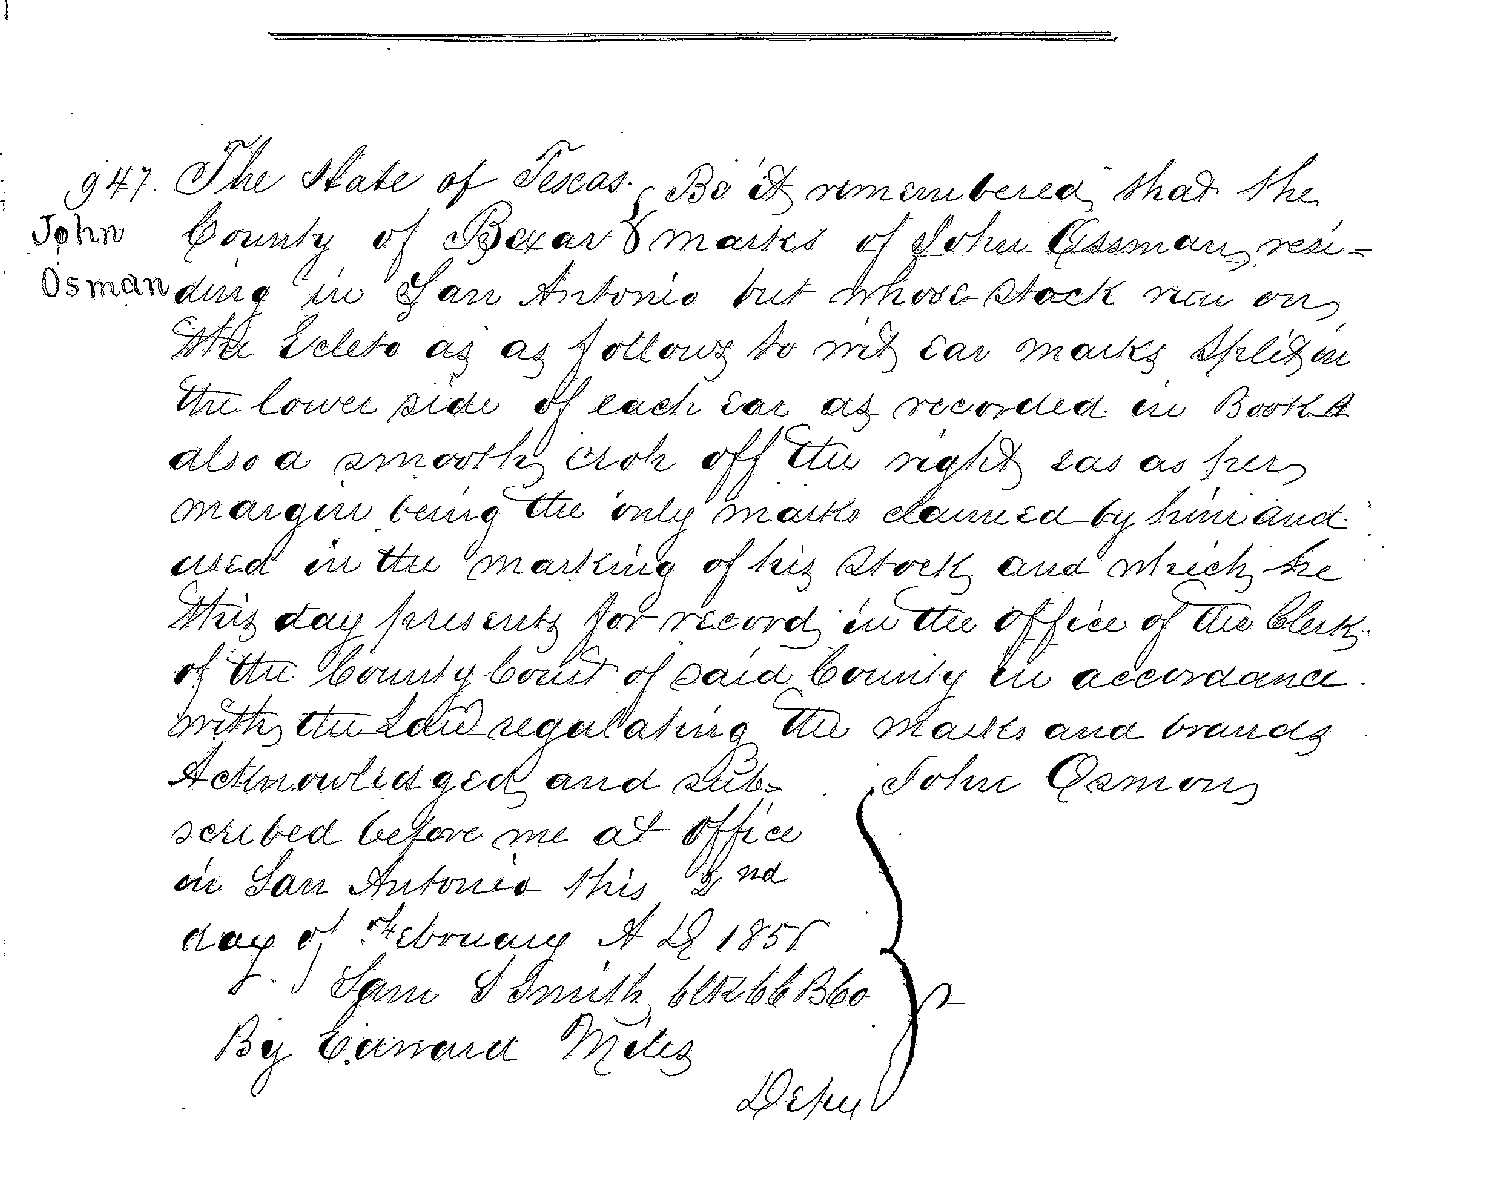 947. The State of Texas. Be it remembered that the
John County of Bexar marks of John Ossman resi-
Osman ding in San Antonio but whose stock run on
the Ecleto as as follows to wit ear marks split in
the lower side of each ear as recorded in Book A
also a smooth crop off the right ear as per
margin being the only marks claimed by him and
used in the marking of his stock and which he
this day presents for record in the office of the Clerk
of the County Court of said County in accordance
with the Law regulating the marks and brands
Acknowledged and sub- John Osmon
scribed before me at office
in San Antonio this 2nd
day of February A D 185
Sam S Smith Clk CC B Co
By Edward Miles
Depy